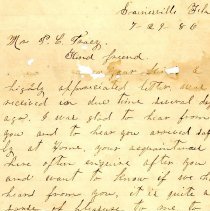 Gainesville Fla
7-29-86
Mr S. C. Tracz
Kind friend.
Your kind &
highly appreciated letter was
received in due time several day
ago. I was glad to hear from
you and to hear you arrived saf
ly at home, your acquaintances
here often enquire after you
and want to know if we h
hear from you, it is quite a
of pleasure to me to